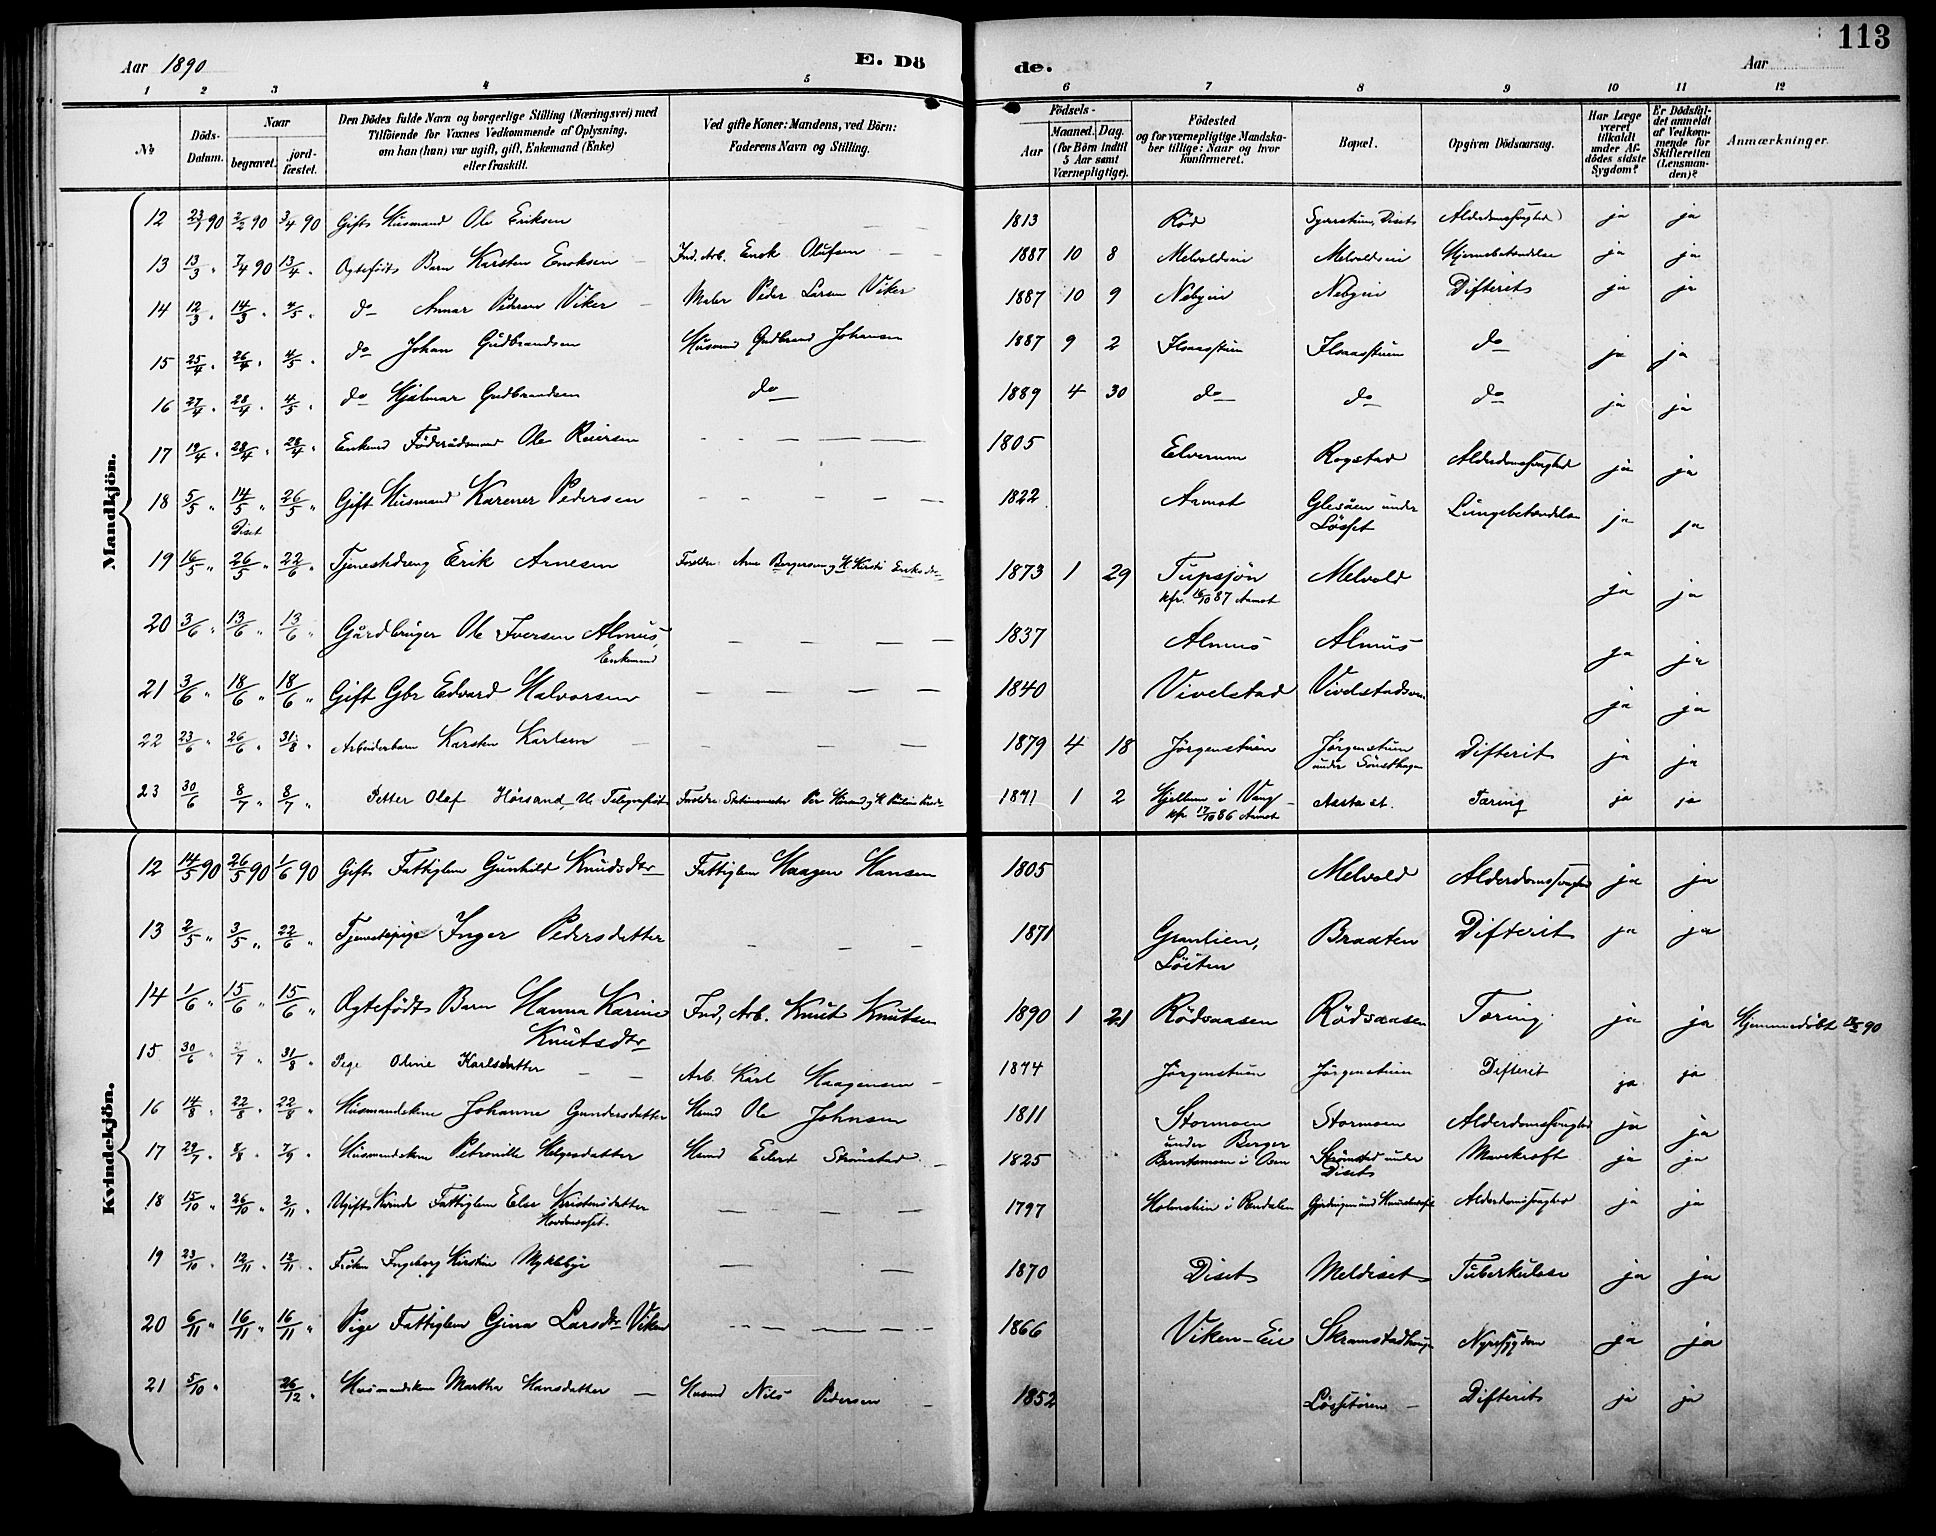 113
Aar 1890
E. Dö
de.
Aar
1 2 3 4 5 6 7 8 9 10 11 12
№
Döds-Datum.
Naar
begravet.
jordfæstet.
Den Dödes fulde Navn og borgerlige Stilling (Næringsvei) med
Tilföiende for Voxnes Vedkommende af Oplysning,
om han (hun) var ugift, gift, Enkemand (Enke)
eller fraskilt.
Ved gifte Koner: Mandens, ved Börn:
Faderens Navn og Stilling.
Födsels-
Aar
Maaned. Dag.
(for Börn indtil
5 Aar samt
Værnepligtige).
Födested
og for værnepligtige Mandska-
ber tillige: Naar og hvor
konfirmeret.
Bopæl.
Opgiven Dödsaarsag.
Har Læge
været
tilkaldt
under Af-
dödes sidste
Sygdom?
Er Dödsfal-
det anmeldt
af Vedkom-
mende for
Skifteretten
(Lensman-
den)?
Anmærkninger.
Mandkjön.
12 23/1 90 2/2 90 3/4 90 Gift Husmand Ole Eriksen 1813 Röd Alderdomssvaghed ja ja
13 13/3 " 7/4 90 13/4 " Ægtefödt Barn Karsten Enoksen Ind. Arb. Enok Olufsen 1887 10 8 Melvoldeie Melvoldeie Hjernebetændelse ja ja
14 12/3 " 14/3 " 4/5 " do Annar Pedersen Viker Maler Peder Larsen Viker 1887 10 9 Nebyeie Nebyeie Difterit ja ja
15 25/4 " 26/4 " 4/5 " do Johan Gudbrandsen Husmand Gudbrand Johansen 1887 9 2 do ja ja
16 27/4 " 28/4 " 4/5 " do Hjalmar Gudbrandsen do 1889 4 30 do do do ja ja
17 19/4 " 28/4 " 28/4 " Enkemd Föderaadsmand Ole Reiersen 1805 Elverum Rogstad Alderdomssvaghed ja ja
18 5/5 " 14/5 " 26/5 " Gift Husmand Karener Pedersen 1822 Aamot Glesåen under Lösset Lungebetændelse ja ja
Diset
19 16/5 " 26/5 " 22/6 " Tjenestedreng Erik Arnesen Foreldre: Arne Bergersen og H. Kirsti Eriksdr 1873 1 29 Tupsjön Melvold ja ja
kfr. 16/10 87 Aamot
20 3/6 " 13/6 " 13/6 " Gårdbruger Ole Iversen Alme 1837 Alme Alme ja ja
Enkemand
21 3/6 " 18/6 " 18/6 " Gift Gbr Edvard Halvorsen 1840 Vivelstad Vivelstadsveen ja ja
22 23/6 " 26/6 " 31/8 " Arbeiderbarn Karsten Karlsen 1879 4 18 Jörgenstuen Jörgenstuen Difterit ja ja
23 30/6 8/7 " 8/7 " Petter Olaf Hörsand U. Telegrafist 1871 1 2 Hjellum i Vang Aasta st. Tæring ja ja
kfr. 17/10 86 Aamot
Kvindekjön.
12 14/5 90 26/5 90 1/6 90 Gift Fattiglem Gunhild Knudsdtr Fattiglem Haagen Hansen 1805 Melvold Alderdomssvaghed ja ja
13 2/5 " 3/5 " 22/6 " Tjenestepige Inger Pedersdatter 1871 Granlien, Löiten Braaten Difterit ja ja
14 1/6 " 15/6 " 15/6 " Ægtefödt Barn Hanna Karine Knutsdtr Ind. Arb. Knut Knutsen 1890 1 21 Rödsaasen Rödsaasen Tæring ja ja Hjemmedöbt 90
15 30/6 /7 " 31/8 " Pige Oline Karlsdatter Arb. Karl Haagensen 1874 Jörgenstuen Jörgenstuen Difterit ja ja
16 14/8 22/8 " 22/8 " Husmandskone Johanne Gundersdatter Hmd Ole Johnsen 1811 Stormoen under Berger Stormoen Alderdomssvaghed ja ja
17 29/7 8/8 " 7/9 " Husmandskone Petronille Helgesdatter Hmd Eilert Strömstad 1825 Strömstad under Diset Mavekræft ja ja
18 15/10 " 26/10 " 2/11 " Ugift Kvinde Fattiglem Else Kristensdatter 1797 Holmstein i Rendalen Alderdomssvaghed ja ja
19 23/10 " 12/11 " 12/11 " Fröken Ingeborg Kirstine Myklebye 1870 Diset Meldiset Tuberkulose ja ja
20 6/11 " 16/11 " 16/11 " Pige Fattiglem Gina Larsdtr Viken 1866 Viken-Eie Skramstadhaugen Nyresygdom ja ja
21 5/10 " 26/12 " Husmandskone Marthe Hansdatter Husmd Nils Pedersen 1852 Lössetören Difterit ja ja